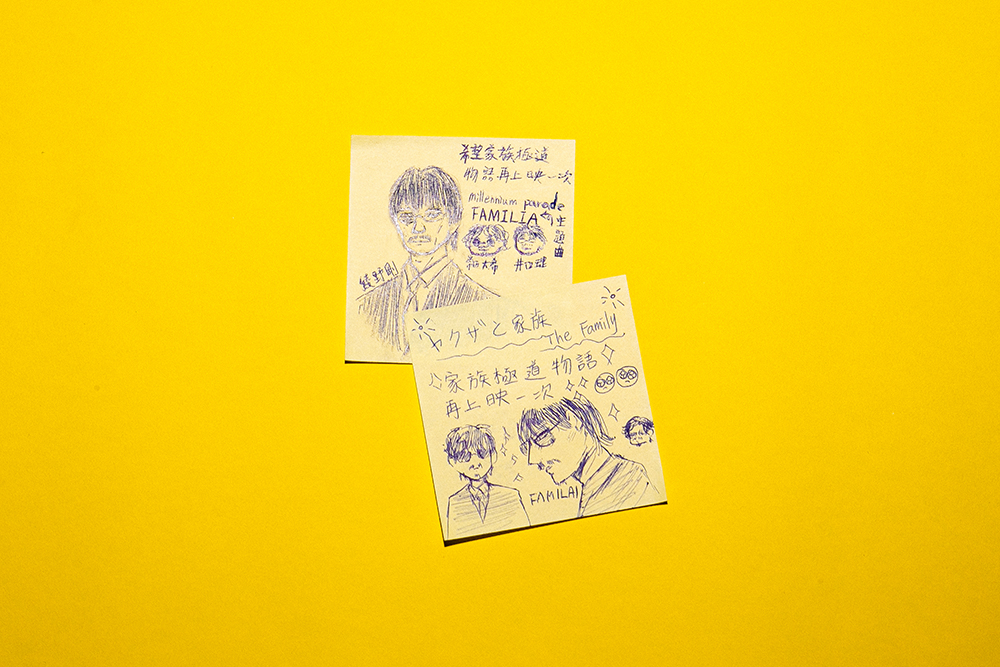 希望家族極道
物語再上映一次
millennium parade
FAMILIA 主
題
曲
大希
井口理
綾野剛
ヤクザと家族
The Family
家族極道物語
再上映一次
FAMILAI